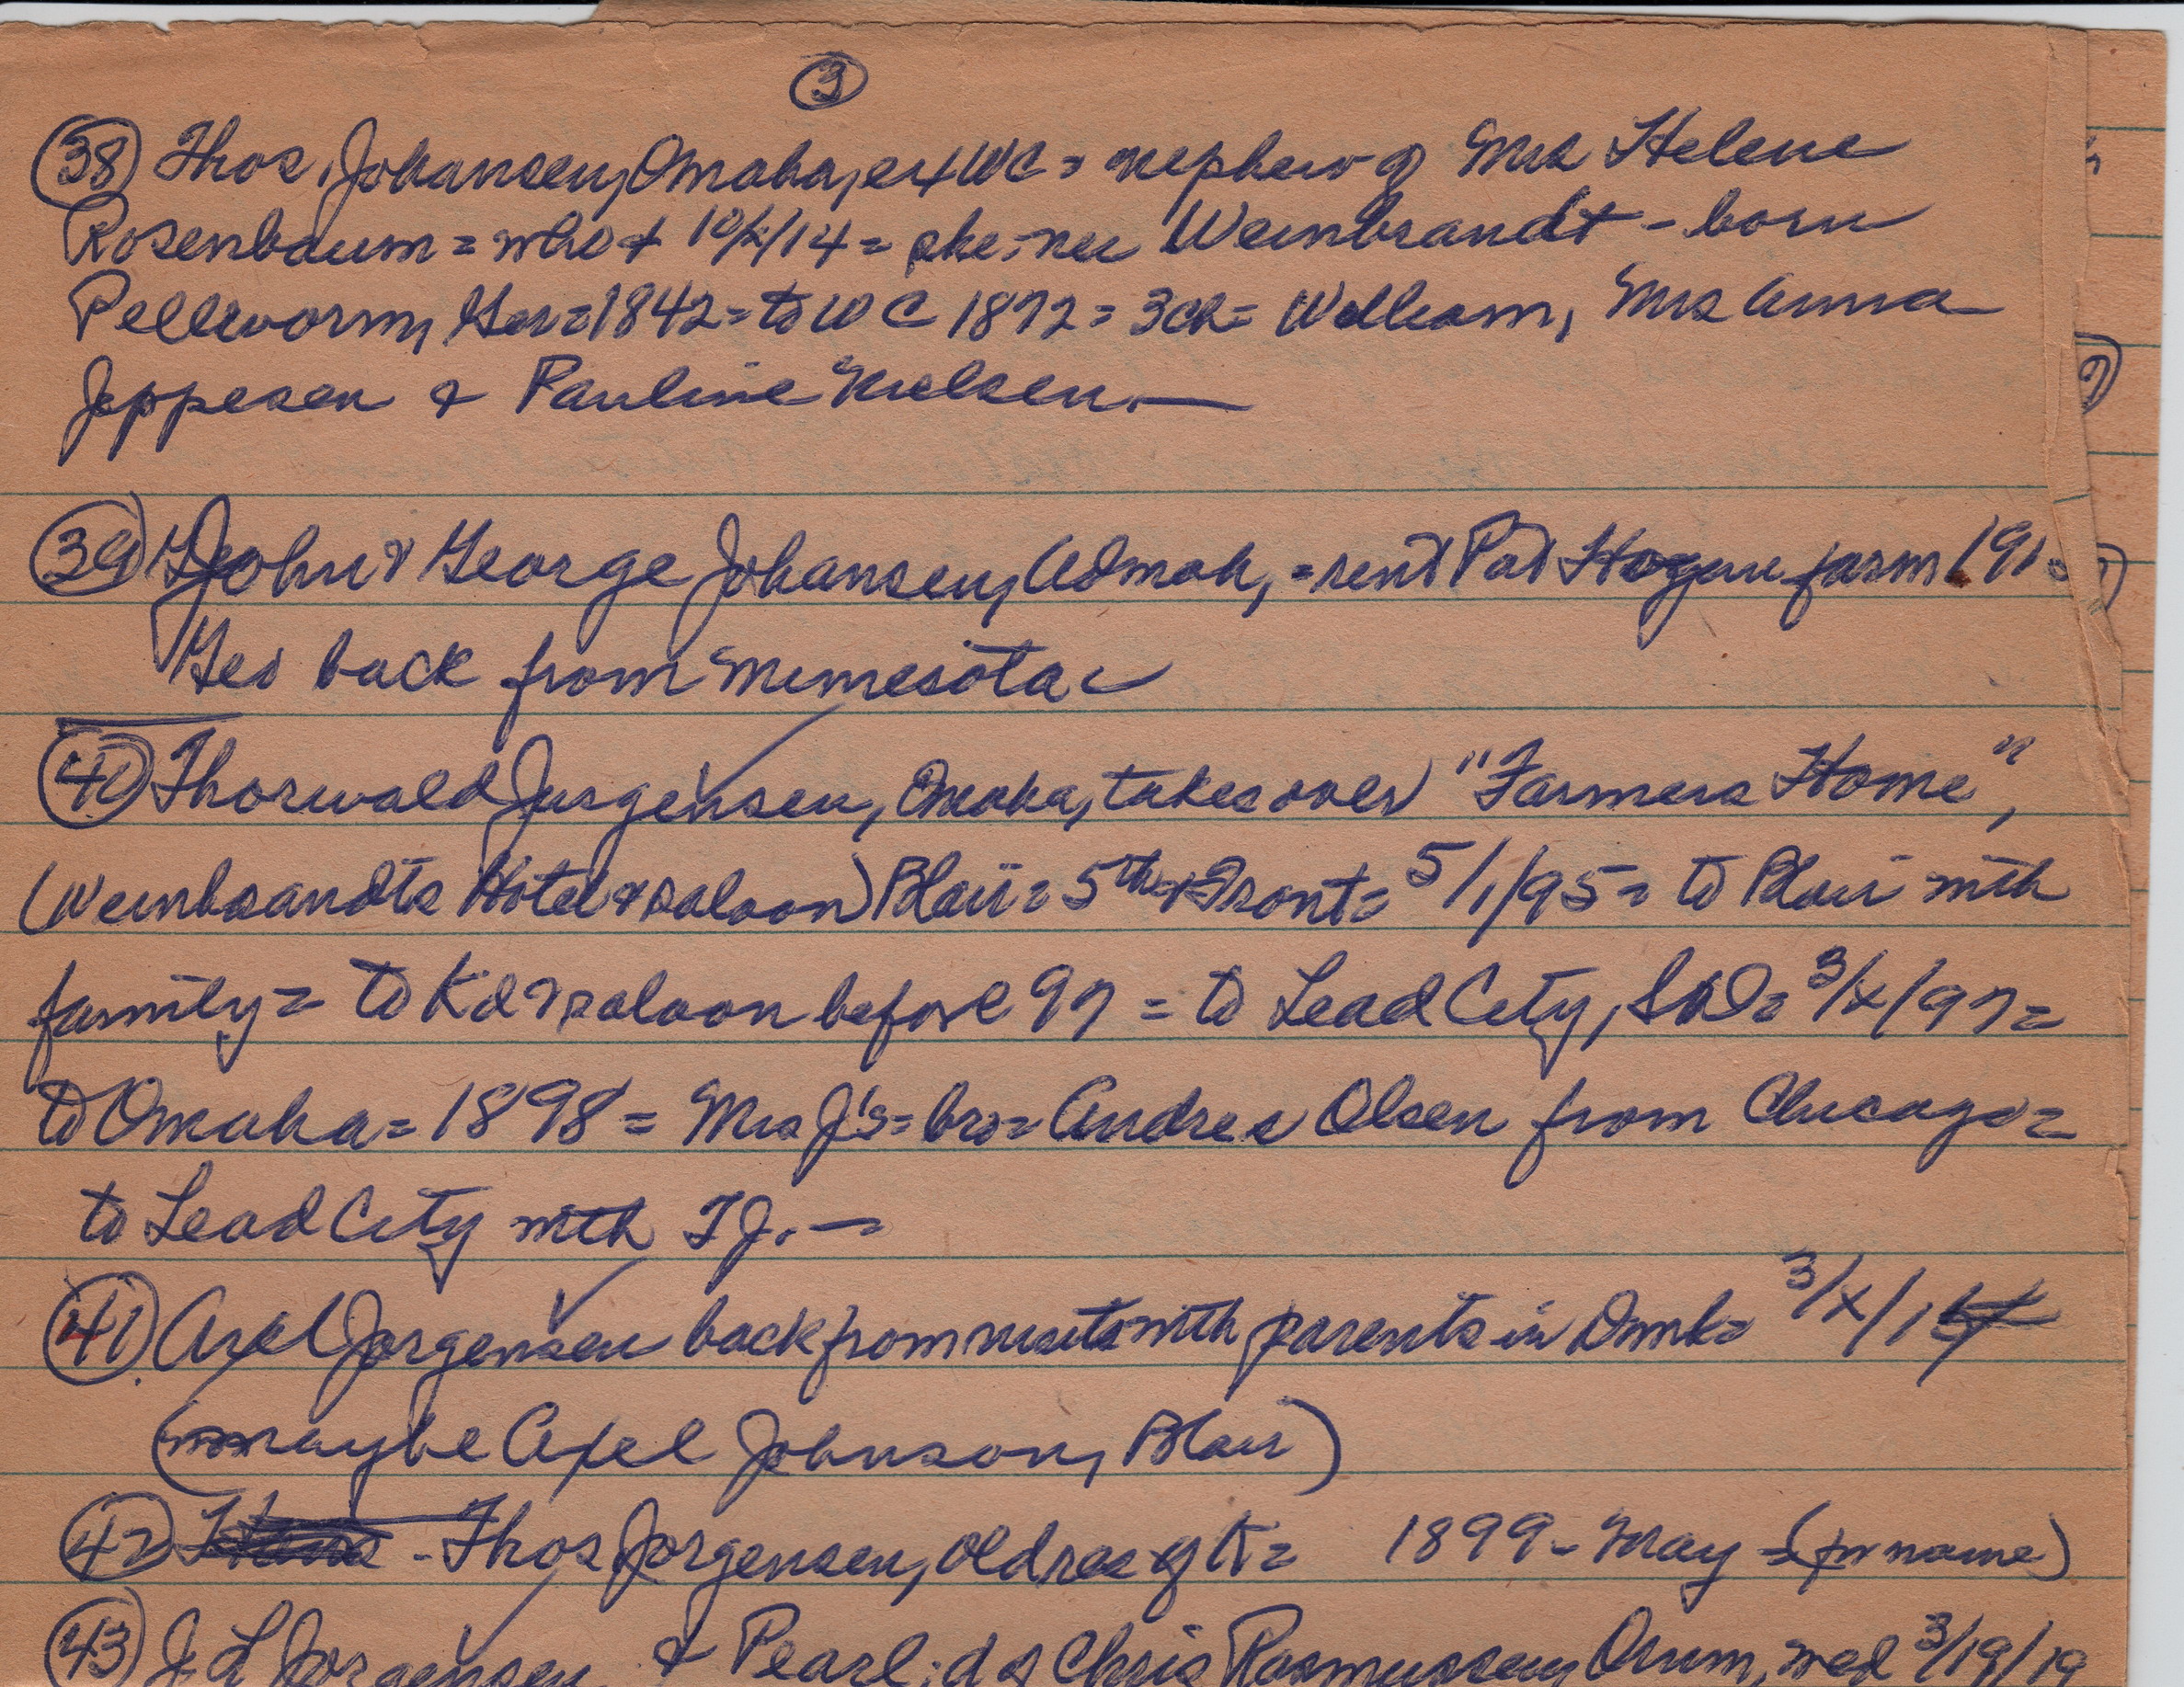 3
38 Thos. Johansen, Omaha, ex WC = nephew of Mrs Helene
Rosenbaum = who + 10/x/14 = she - nee Weinbrandt - born
Pellworm, Ger = 1842 = to WC 1872 = 3 ch = William, Mrs Anna
Jeppesen & Pauline Nielsen. —
39 John & George Johansen, Admah, = rent Pat Hogan farm 191
Geo back from Minnesota
40 Thorwald Jurgensen, Omaha, takes over "Farmers Home",
(Weinbrandts Hotel & saloon) Blair = 5th & Front = 5/1/95 = to Blair with
family = to Kd & saloon before 97 = to Lead City, SD = 3/x/97 =
to Omaha = 1898 = Mrs J's = bro = Andres Olsen from Chicago =
to Lead City with TJ. —
41 Axel Jorgensen back from visit with parents in Dnmk = 3/x/1
(maybe Axel Johnson, Blair)
42 - Thos Jorgensen, old res of K = 1899 - May = (pr name)
43 J L Jorgensen & Pearl : d of Chris Rasmussen, Orum, wed 3/19/19